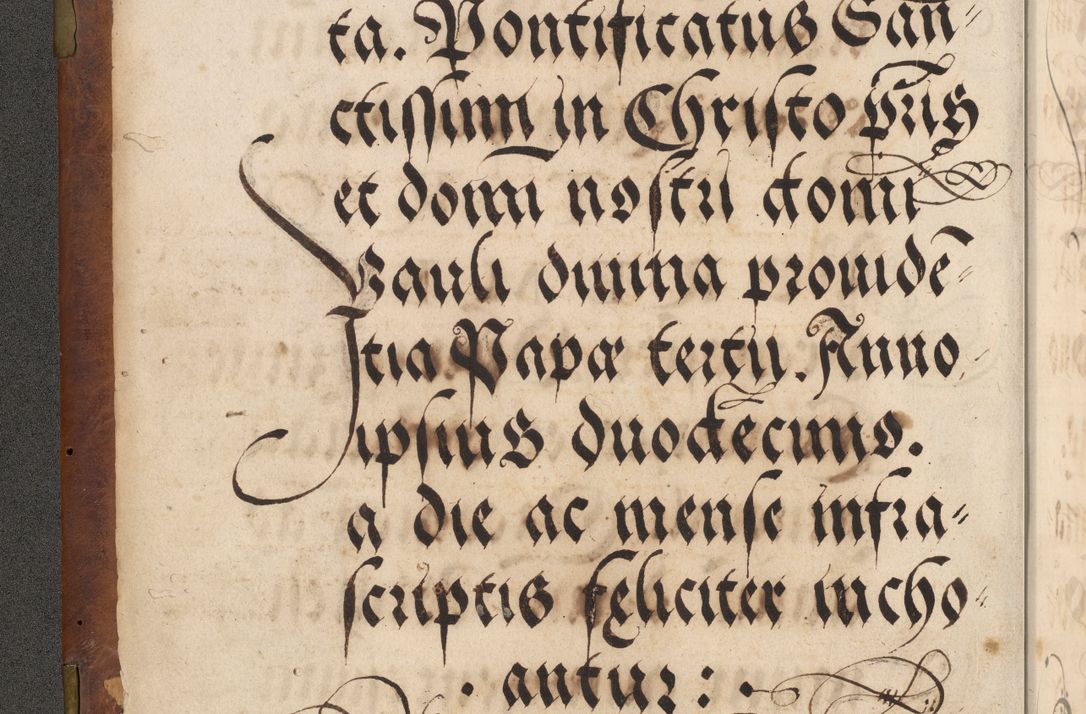 ta. Pontificatus San-
ctissimi in Christo pr̃is
et domi nostri domi
Pauli diuina prouidē-
tia Papæ tertii. Anno
ipsius duodecimo.
a die ac mense infra-
scriptis feliciter incho-
antur: